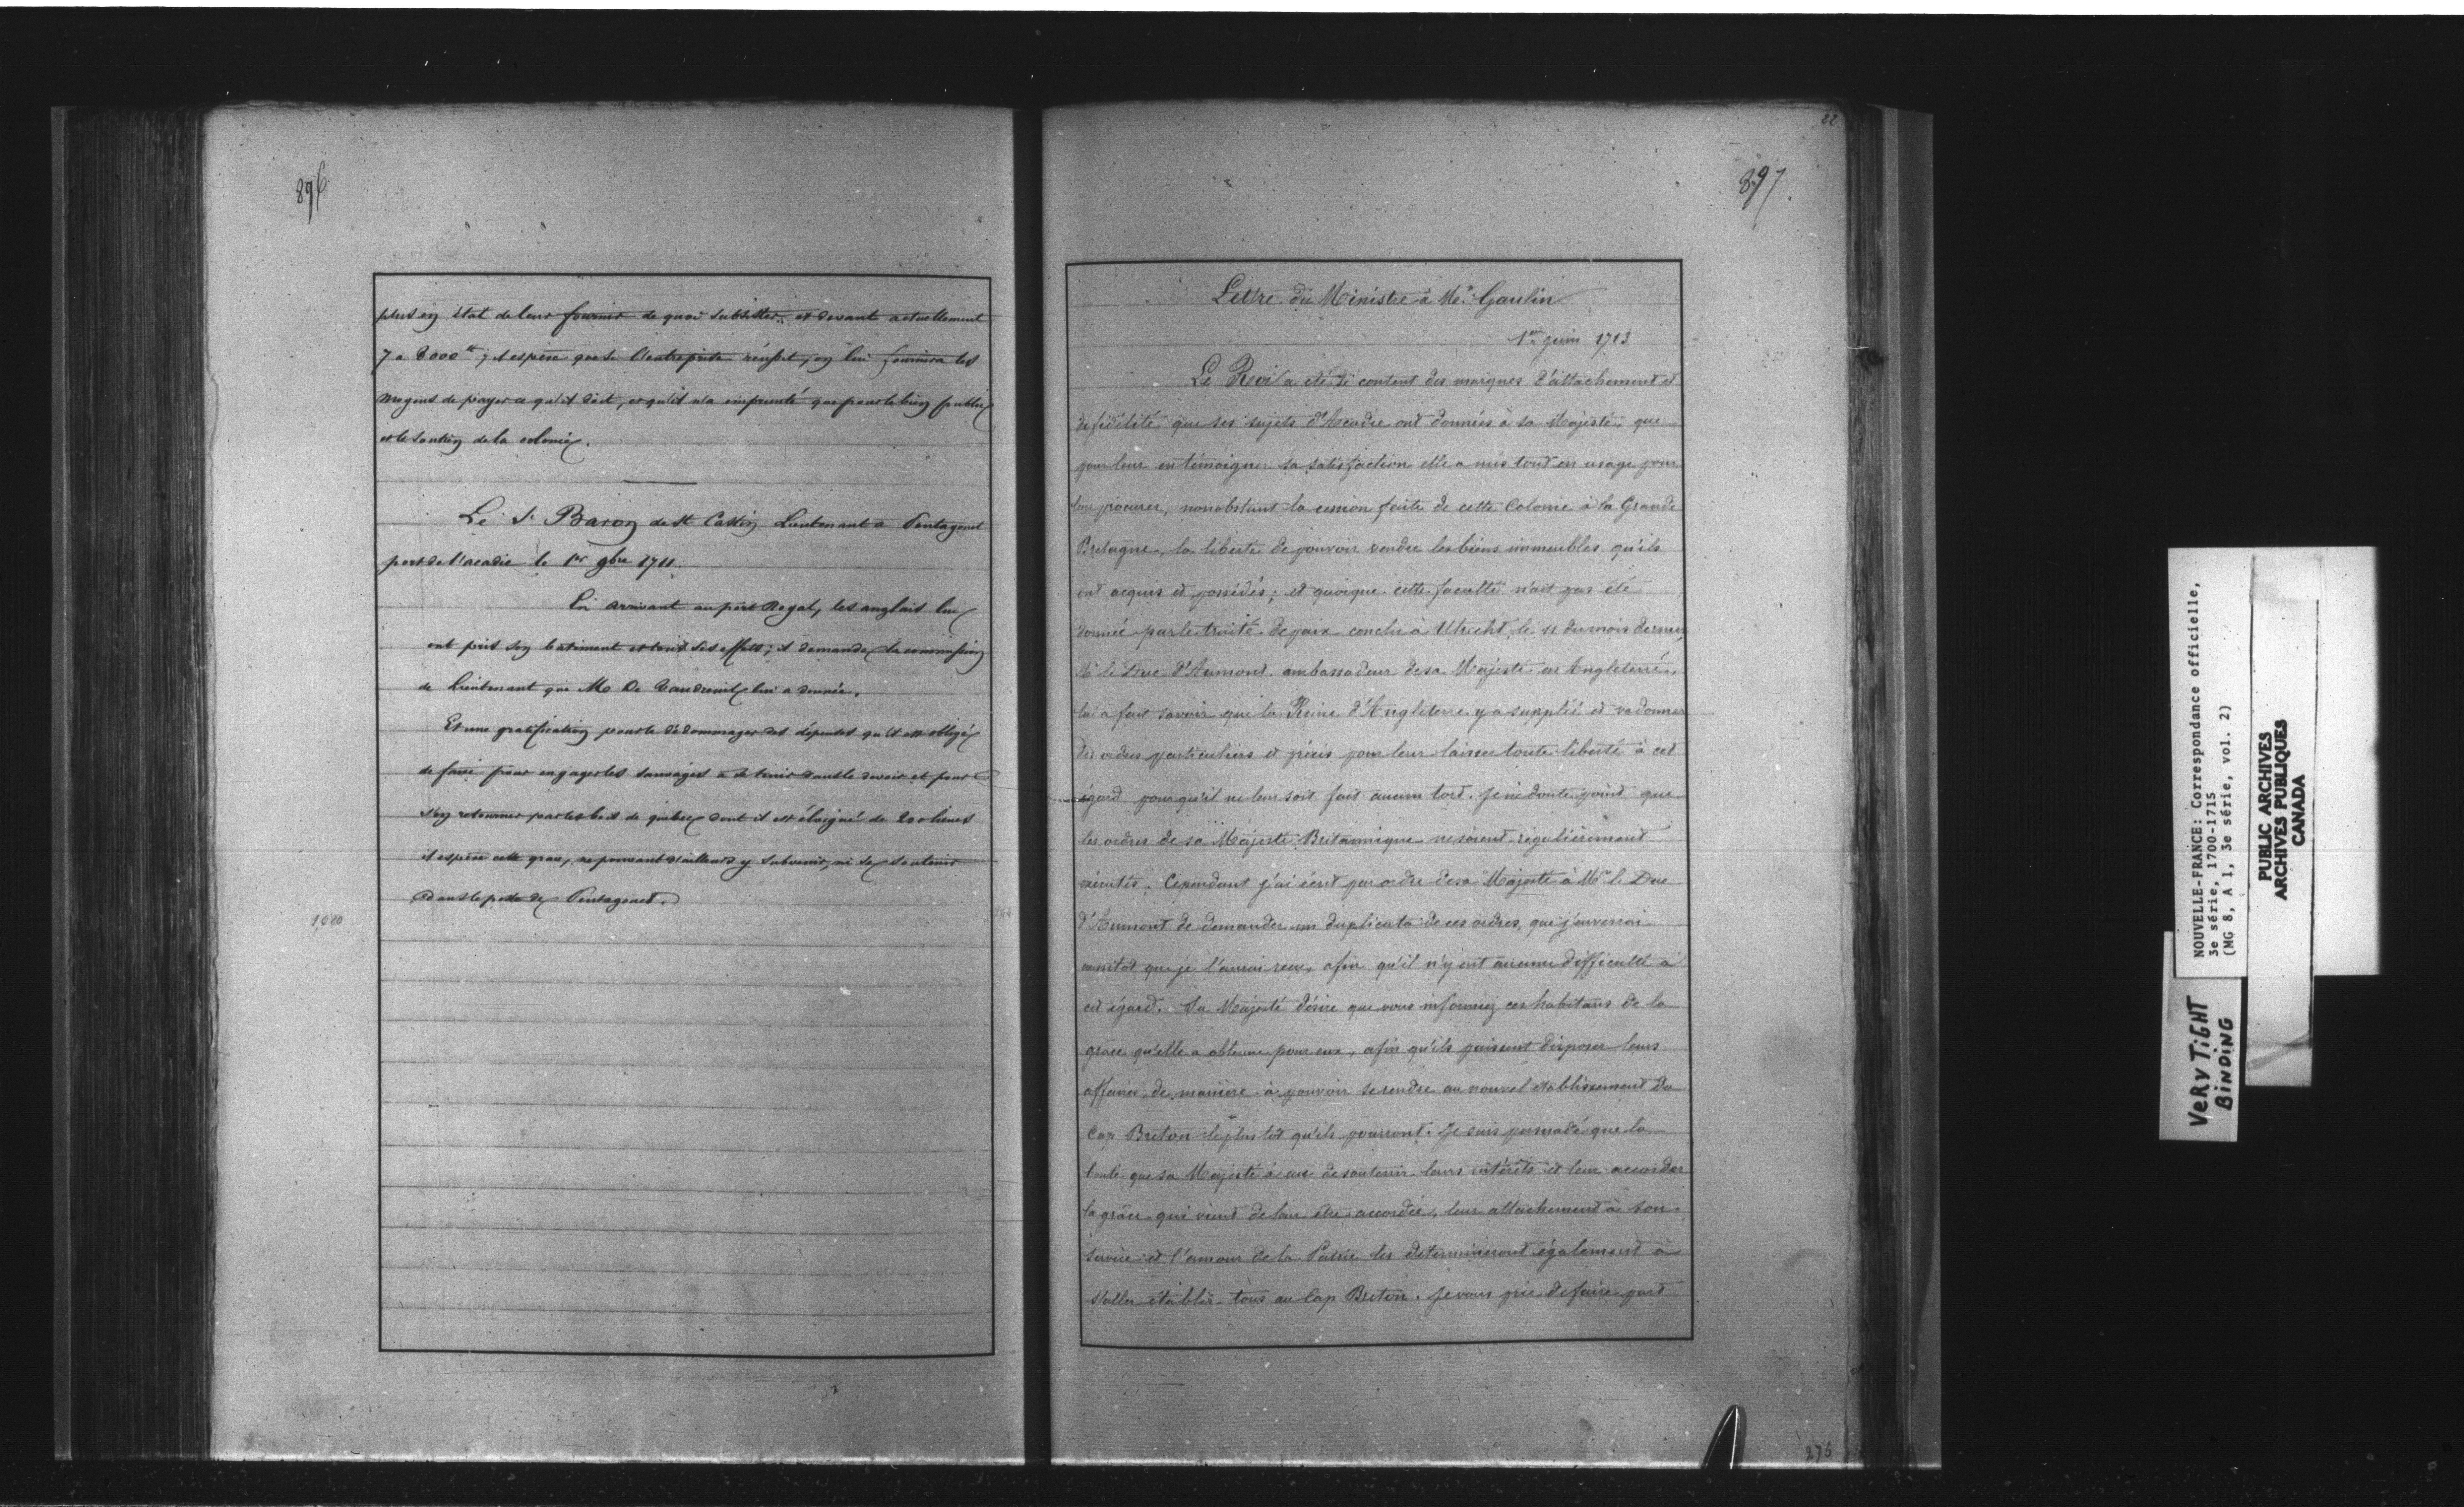 896
plus en état de leur fournir de quoi subsister, et devant actuellement
7 a 8000 tt; il espère que si l'entreprise réussit, on lui fournira les
moyens de payer ce qu'il doit, et qu'il n'a emprunté que pour le bien public
et le soutien de la colonie.
Le Sr Baron de St Castin Lieutenant a Pentagouet
port de l'acadie le 1er 9bre 1711
En arrivant au port Royal, les anglais lui
ont pris son bâtiment et tous ses effets; il demande la commission
de Lieutenant que Mr De Vaudreuil lui a donnée.
Et une gratification pour le dédommager des dépenses qu'il est obligé
de faire pour engager les sauvages a se tenir dans le devoir et pour
s'en retourner par les bois de quebec dont il est éloigné de 200 lieues
il espère cette grace, ne pouvant d'ailleurs y subvenir, ni se soutenir
dans le poste de Pentagouet.
1,080
22
897
Lettre du Ministre à Mr. Gaulin
1er juin 1713
Le Roi a été si content des marques d'attachement et
de fidélité que ses sujets d'Acadie ont données à sa Majesté, que
pour leur en témoigner sa satisfaction elle a mis tout en usage pour
leur procurer, nonobstant la cession faite de cette Colonie à la Grande
Bretagne, la liberté de pouvoir vendre les biens immeubles qu'ils
ont acquis et possédés; et quoique cette faculté n'ait pas été
donnée par le traité de paix conclu à Utrecht, le 11 du mois dernier
Mr le Duc d'Aumont, ambassadeur de sa Majesté en Angleterre,
lui a fait savoir que la Reine d'Angleterre y a suppléé et va donner
des ordres particuliers et précis pour leur laisser toute liberté à cet
égard pour qu'il ne leur soit fait aucun tort. Je ne doute point que
les ordres de sa Majesté Britannique ne soient régulièrement
exécutés. Cependant j'ai écrit par ordre de sa Majesté à Mr le Duc
d'Aumont de demander un duplicata de ces ordres, que j'enverrai
aussitot que je l'aurai reçu, afin qu'il n'y ait aucune difficulté à
cet égard. Sa Majesté désire que vous informiez ces habitans de la
grâce qu'elle a obtenue pour eux, afin qu'ils puissent disposer leurs
affaires de manière à pouvoir se rendre au nouvel établissement du
Cap Breton le plus tôt qu'ils pourront. Je suis persuadé que la
bonté que sa Majesté a eue de soutenir leurs intérêts et leur accorder
la grâce qui vient de leur être accordée, leur attachement à son
service et l'amour de la Patrie les détermineront également à
s'aller établir tous au Cap Breton. Je vous prie de faire part
276
NOUVELLE-FRANCE: Correspondance officielle,
3e série, 1700-1715
(MG 8, A 1, 3e série, vol. 2)
PUBLIC ARCHIVES
ARCHIVES PUBLIQUES
CANADA
VERY TIGHT
BINDING